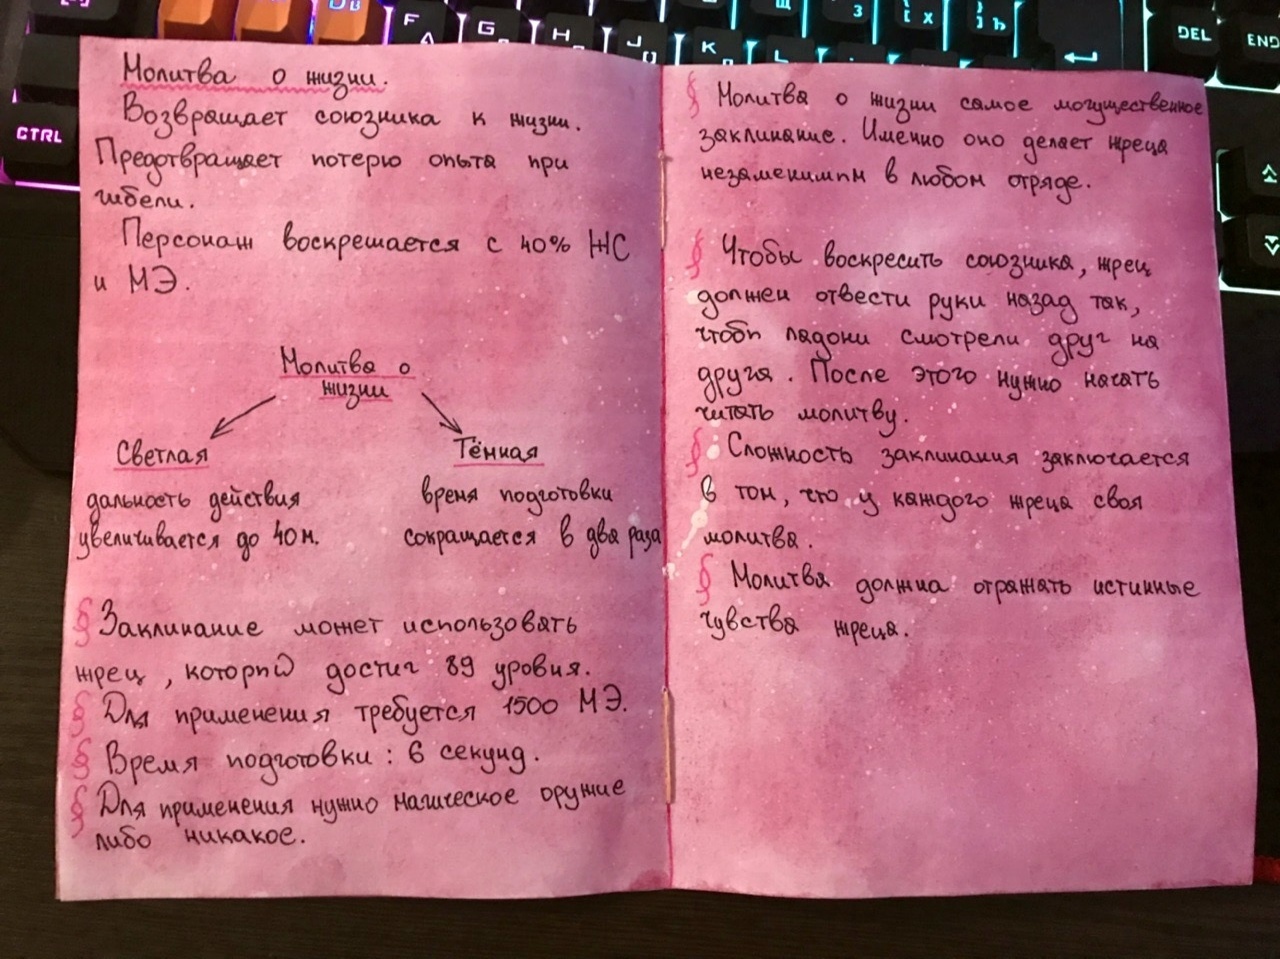 Молитва о жизни.
Возвращает союзника к жизни.
Предотвращает потерю опыта при
гибели.
Персонаж воскрешается с 40% ЖС
и МЭ.
Молитва о
жизни
Светлая
дальность действия
увеличивается до 40 м.
Тёмная
время подготовки
сокращается в два раза
§ Заклинание может использовать
жрец, который достиг 89 уровня.
§ Для применения требуется 1500 МЭ.
§ Время подготовки: 6 секунд.
§ Для применения нужно магическое оружие
либо никакое.
§ Молитва о жизни самое могущественное
заклинание. Именно оно делает жреца
незаменимым в любом отряде.
§ Чтобы воскресить союзника, жрец
должен отвести руки назад так,
чтобы ладони смотрели друг на
друга. После этого нужно начать
читать молитву.
§ Сложность заклинания заключается
в том, что у каждого жреца своя
молитва.
§ Молитва должна отражать истинные
чувства жреца.
CTRL
F
A
G
H
J
K
З
[ Х
] Ъ
DEL
END